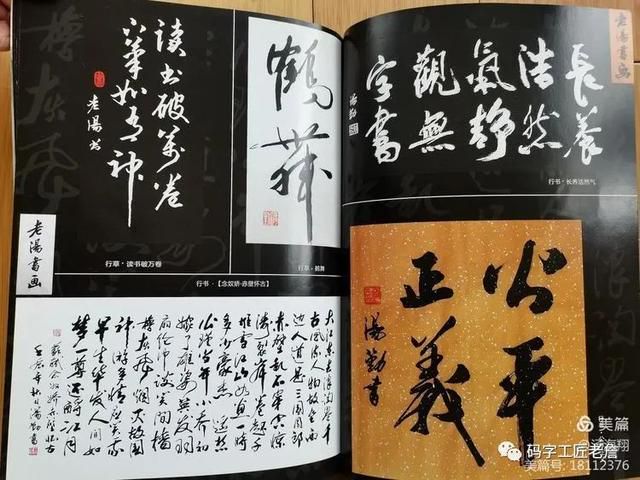 读书破萬卷
下筆如有神
老湯书
行草·读书破万卷
鶴舞
行草·鹤舞
老湯書画
行书·【念奴娇·赤壁怀古】
大江东去浪淘尽千
古风流人物故垒西
边人道是三国周郎
赤壁乱石穿空惊
涛裂岸卷起千
堆雪江山如画一时
多少豪杰
公瑾当年小乔初
嫁了雄姿英发羽
扇纶巾谈笑间樯
橹灰飞烟灭故国
神游多情应笑我
早生华发人间如
梦一尊还酹江月
老湯書画
長養
浩然
氣静
觀無
字書
湯勤
行书·长养浩然气
公平
正義
湯勤書
美篇
码字工匠老詹
美篇号: 18112376